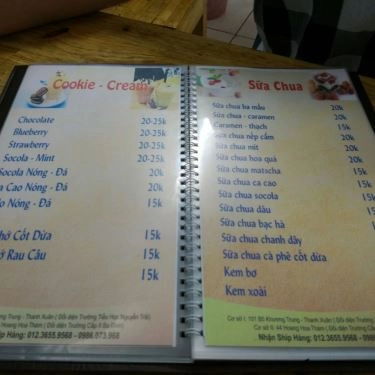 Cookie - Cream
Chocolate 20-25k
Blueberry 20-25k
Strawberry 20-25k
Socola - Mint 20-25k
Socola Nóng - Đá 20k
Ca Cao Nóng - Đá 20k
Nóng - Đá 15k
Cốt Dừa 15k
Rau Câu 15k
15k
Trung - Thanh Xuân ( Đối diện Trường Tiểu Học Nguyễn Trãi)
Hoàng Hoa Thám ( Đối diện Trường Cấp II Ba Đình)
Hàng: 012.3655.9568 - 0986.073.968
Sữa Chua
Sữa chua ba mầu 20k
Sữa chua - caramen 20k
Caramen - thạch 15k
Sữa chua nếp cẩm 20k
Sữa chua mít 20k
Sữa chua hoa quả 20k
Sữa chua matscha 15k
Sữa chua ca cao 15k
Sữa chua socola 15k
Sữa chua dâu 15k
Sữa chua bạc hà 15k
Sữa chua chanh dây
Sữa chua cà phê cốt dừa
Kem bơ
Kem xoài
Cơ sở I: 101 B0 Khương Trung - Thanh Xuân ( Đối diện
Cơ sở II: 44 Hoàng Hoa Thám ( Đối diện Trường
Nhận Ship Hàng: 012.3655.9568